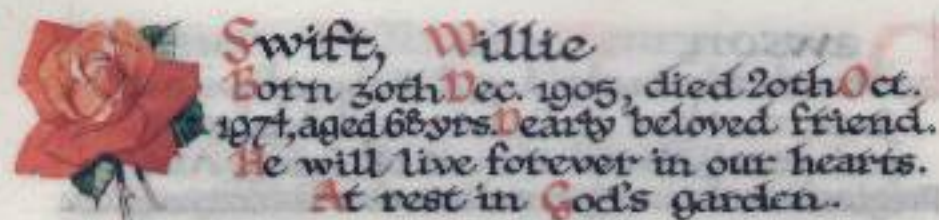 Swift, Willie
Born 30th Dec. 1905, died 20th Oct.
1974, aged 68yrs. Dearly beloved friend.
He will live forever in our hearts.
At rest in God's garden.